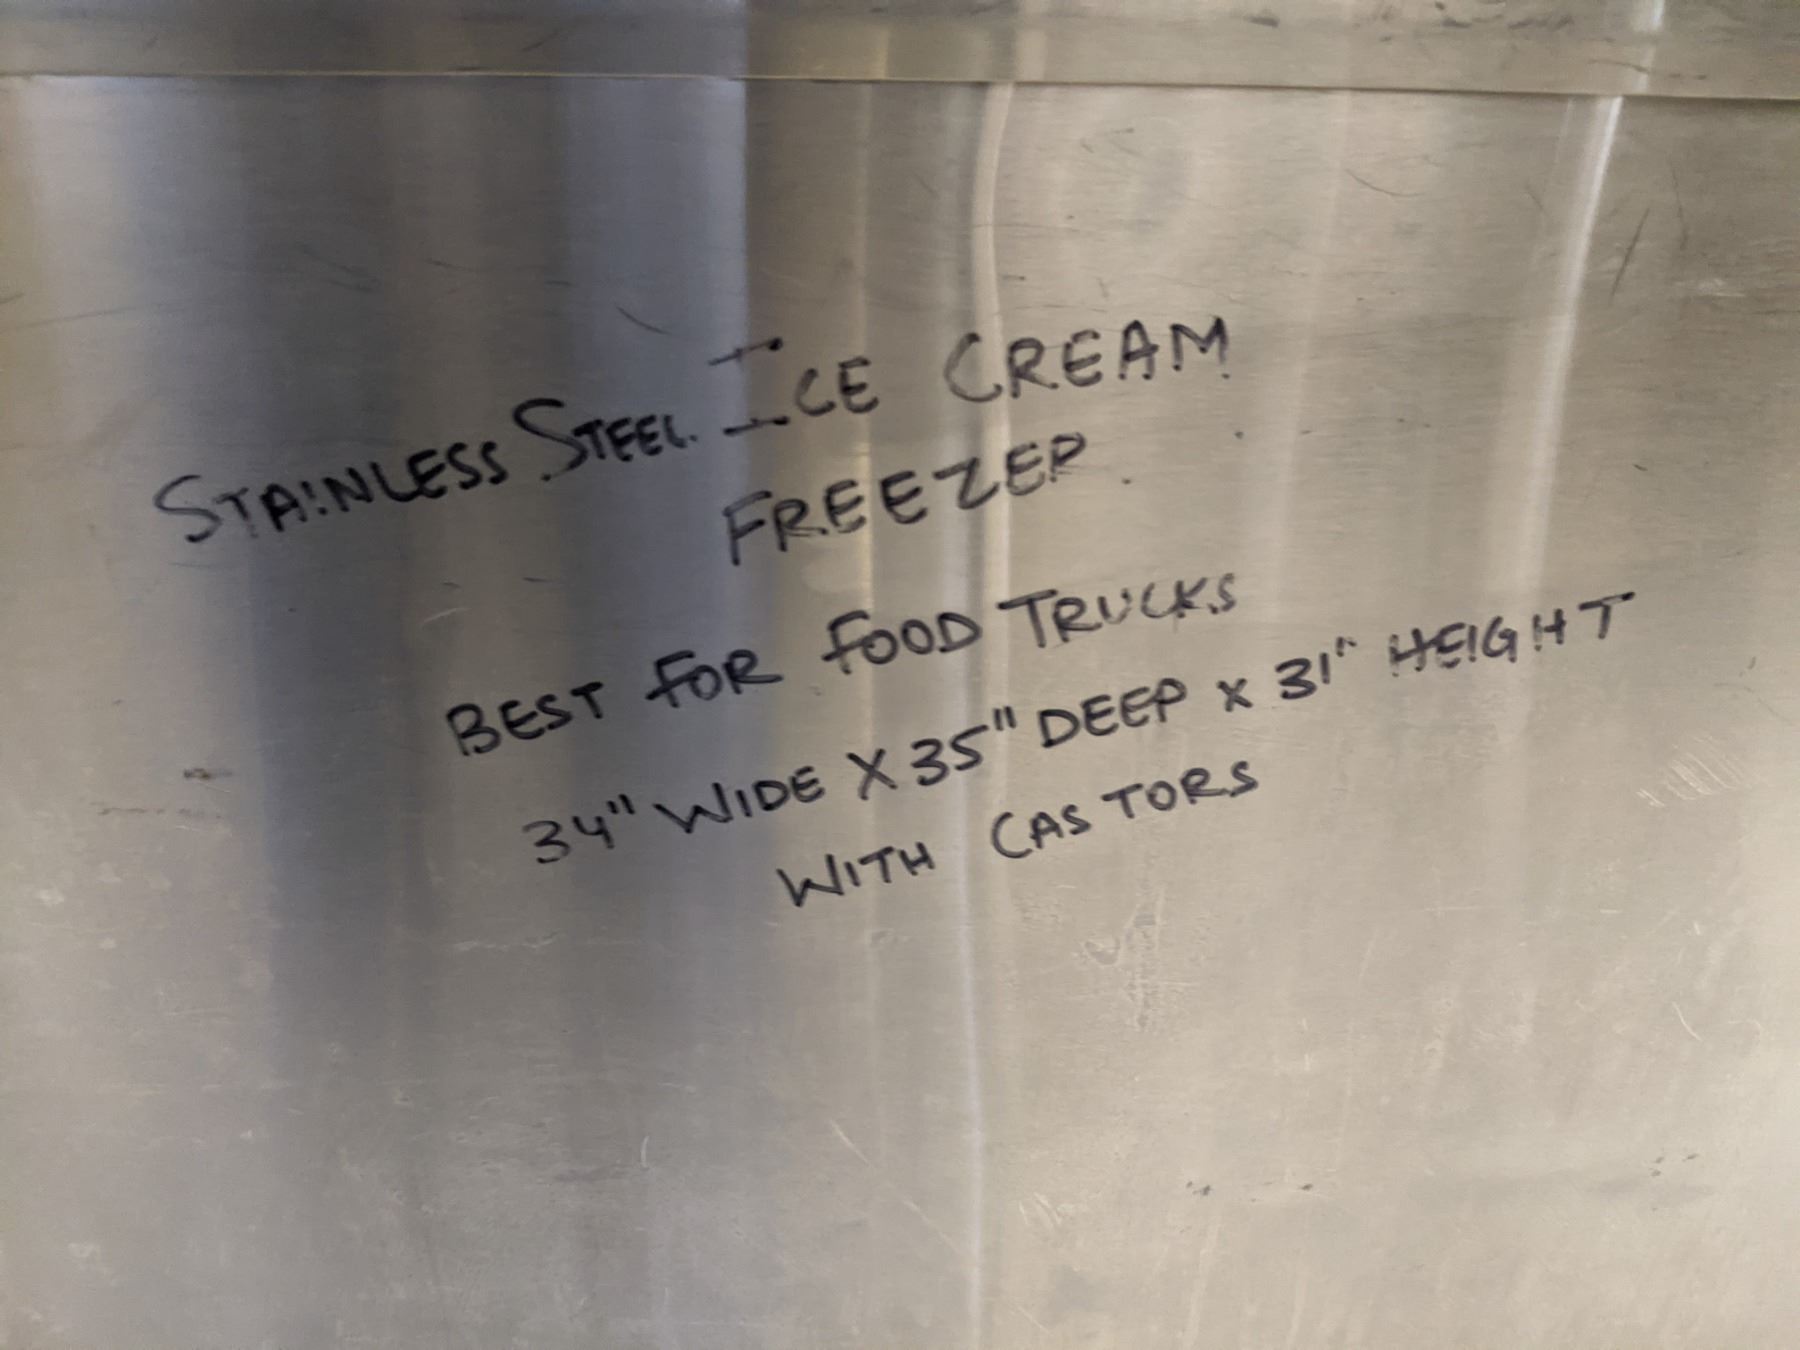 STAINLESS STEEL ICE CREAM
FREEZER
BEST FOR FOOD TRUCKS
34" WIDE X 35" DEEP X 31" HEIGHT
WITH CASTORS